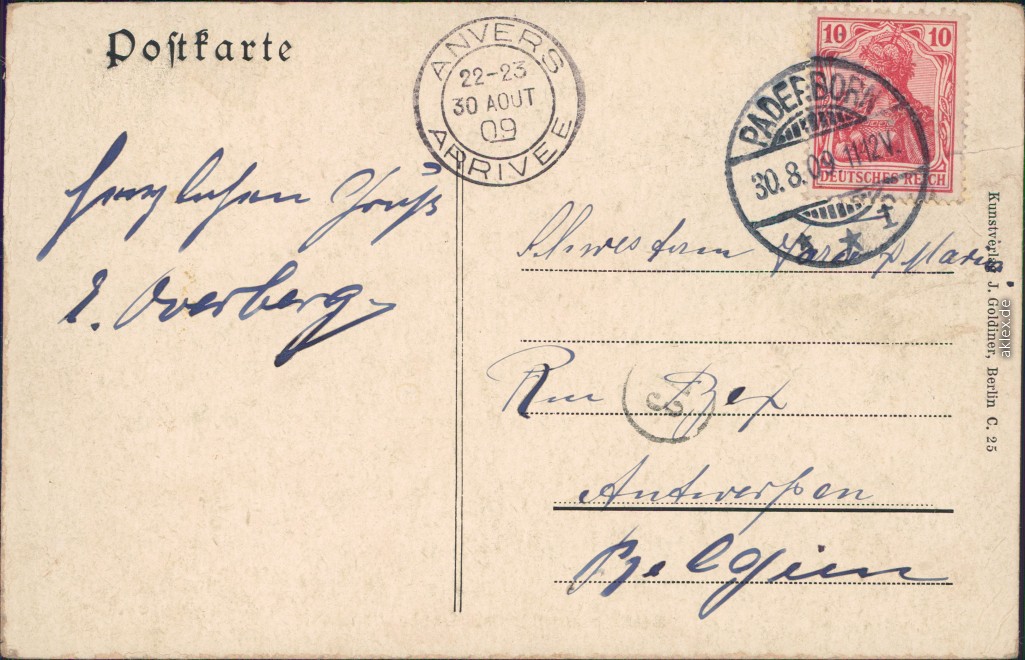 Postkarte
ANVERS
22-23
30 AOUT
09
ARRIVEE
10 10
DEUTSCHES REICH
PADERBORN
30.8.09.11-12V.
* 1
herzlichen Gruß
Overberg
Schwestern
Rue Bex
Antwerpen
Belgien
Kunstverlag J. Goldiner, Berlin C. 25
akpool.de